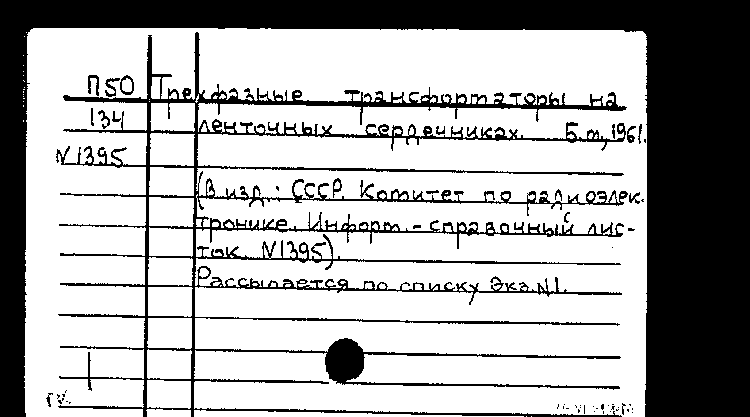 П50 Трехфазные трансформаторы на
134 ленточных сердечниках. Б.m, 1961.
N1395
(В изд.: СССР. Комитет по радиоэлек-
тронике. Информ.-справочный лис-
ток. N1395).
Рассылается по списку Экз.N1.